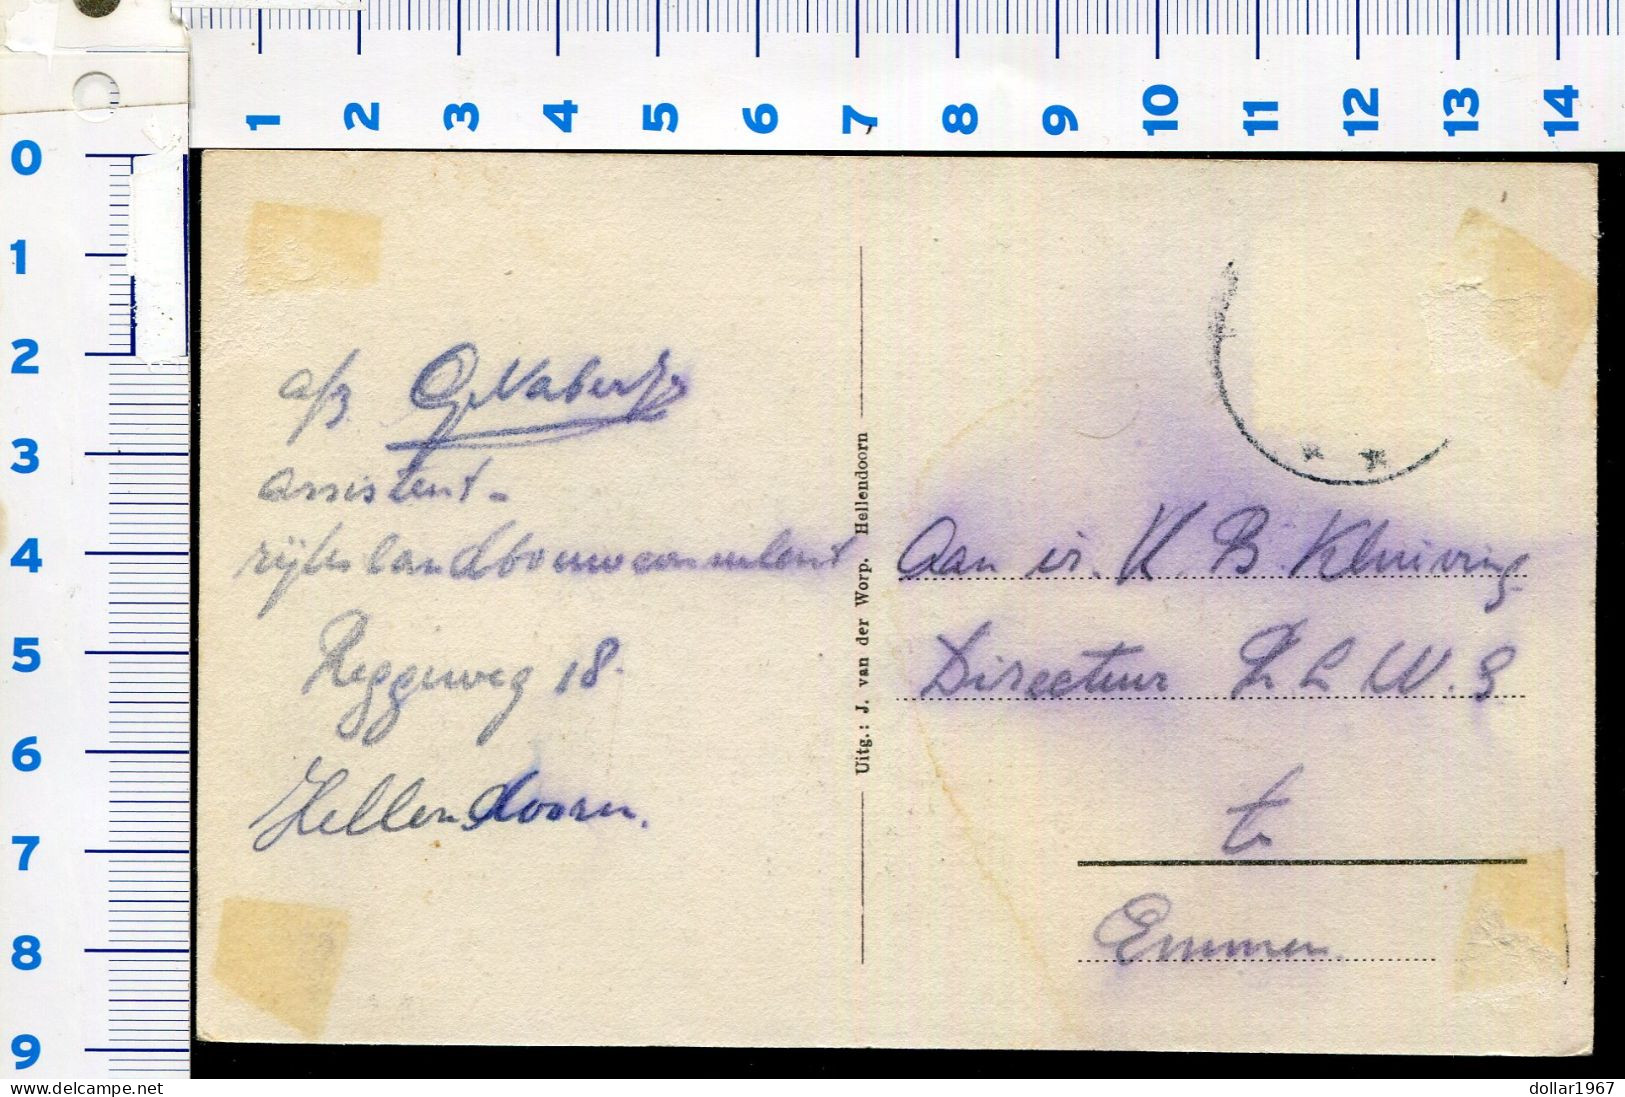 1 2 3 4 5 6 7 8 9 10 11 12 13 14
0
1
2
3
4
5
6
7
8
9
a/z G. Naberts
assistent-
rijkslandbouwconsulent
Reggeweg 18.
Hellendoorn.
Uitg.: J. van der Worp. Hellendoorn
Aan ir. K. B. Kluiving
Directeur R L W. S
te
Emmen.
the-memory-card.com
dollar1967